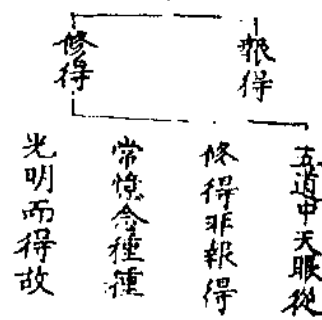 報得
修得
五道中天眼從
修得非報得
常憶念種種
光明而得故